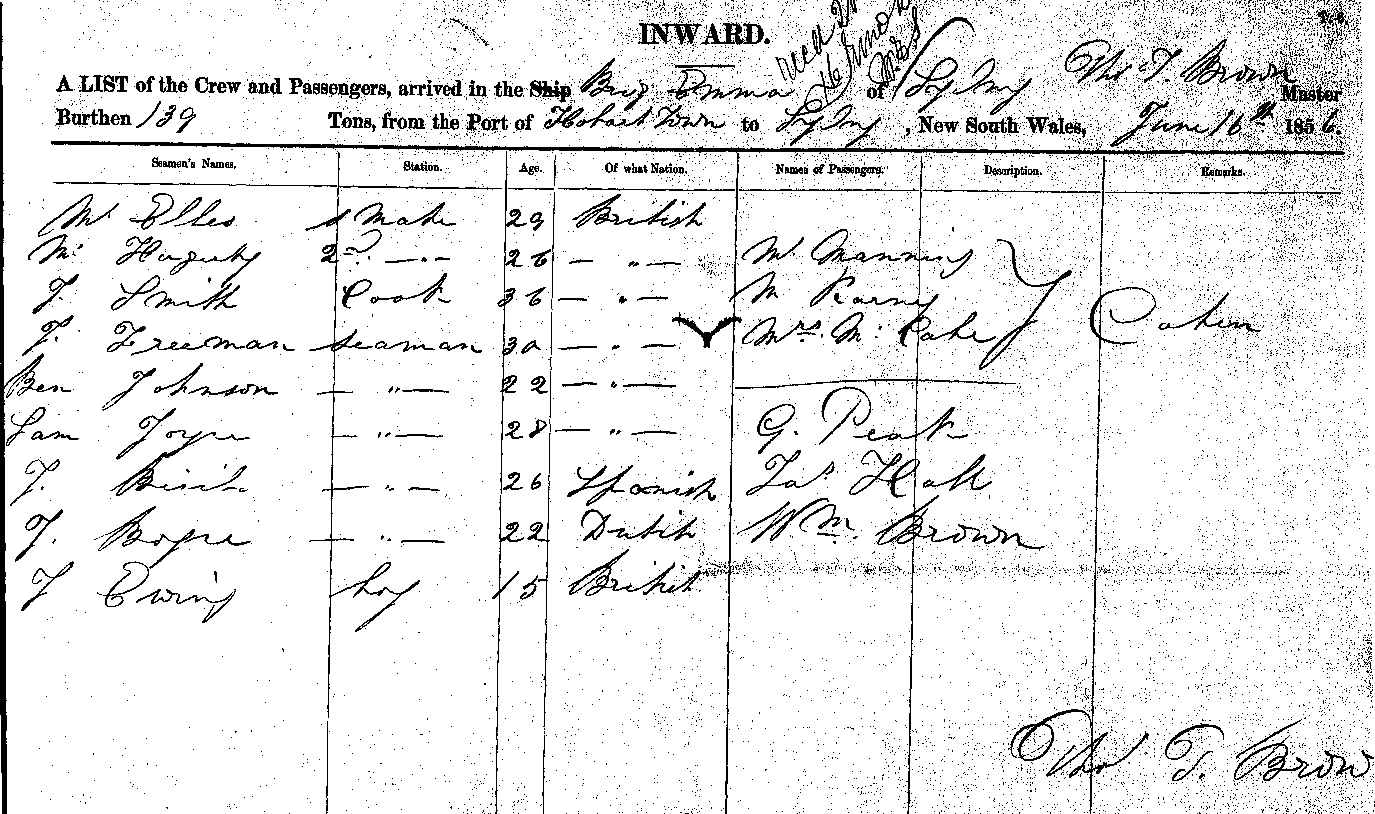 INWARD.
A LIST of the Crew and Passengers, arrived in the Ship Brig Emma of Sydney Thos. T. Brown Master
Burthen 139 Tons, from the Port of Hobart Town to Sydney, New South Wales, June 16th 1856.
Seamen's Names. Station. Age. Of what Nation. Names of Passengers. Description. Remarks.
Mr Elles Mate 29 British
Mr Hagurty 2nd —"— 26 — " — Mr Manning
J. Smith Cook 36 — " — M
J. Freeman Seaman 30 — " — Mrs Mc Cabe Cabin
Ben Johnson — " — 22 — " —
Sam Joyce — " — 28 — " — G. Peak
J. — " — 26 Spanish Jas Hall
J. — " — 22 Dutch Wm. Brown
J Ewing boy 15 British
Thos T. Brow